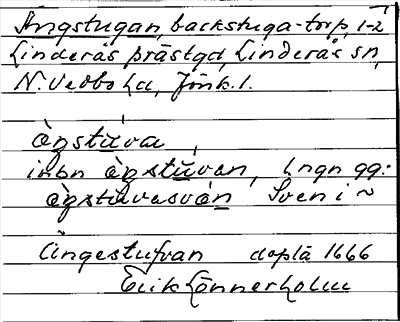 Ängstugan, backstuga-torp, 1-2
Linderås prästgd, Linderås sn,
N. Vedbo hd, Jönk. l.
ä̀ŋstùva,
inbn ä̀ŋstùvan, Lngn gg:
ä̀ŋstùvasvän Sven i ~
Ängestufvan doplä 1666
Erik Lönnerholm